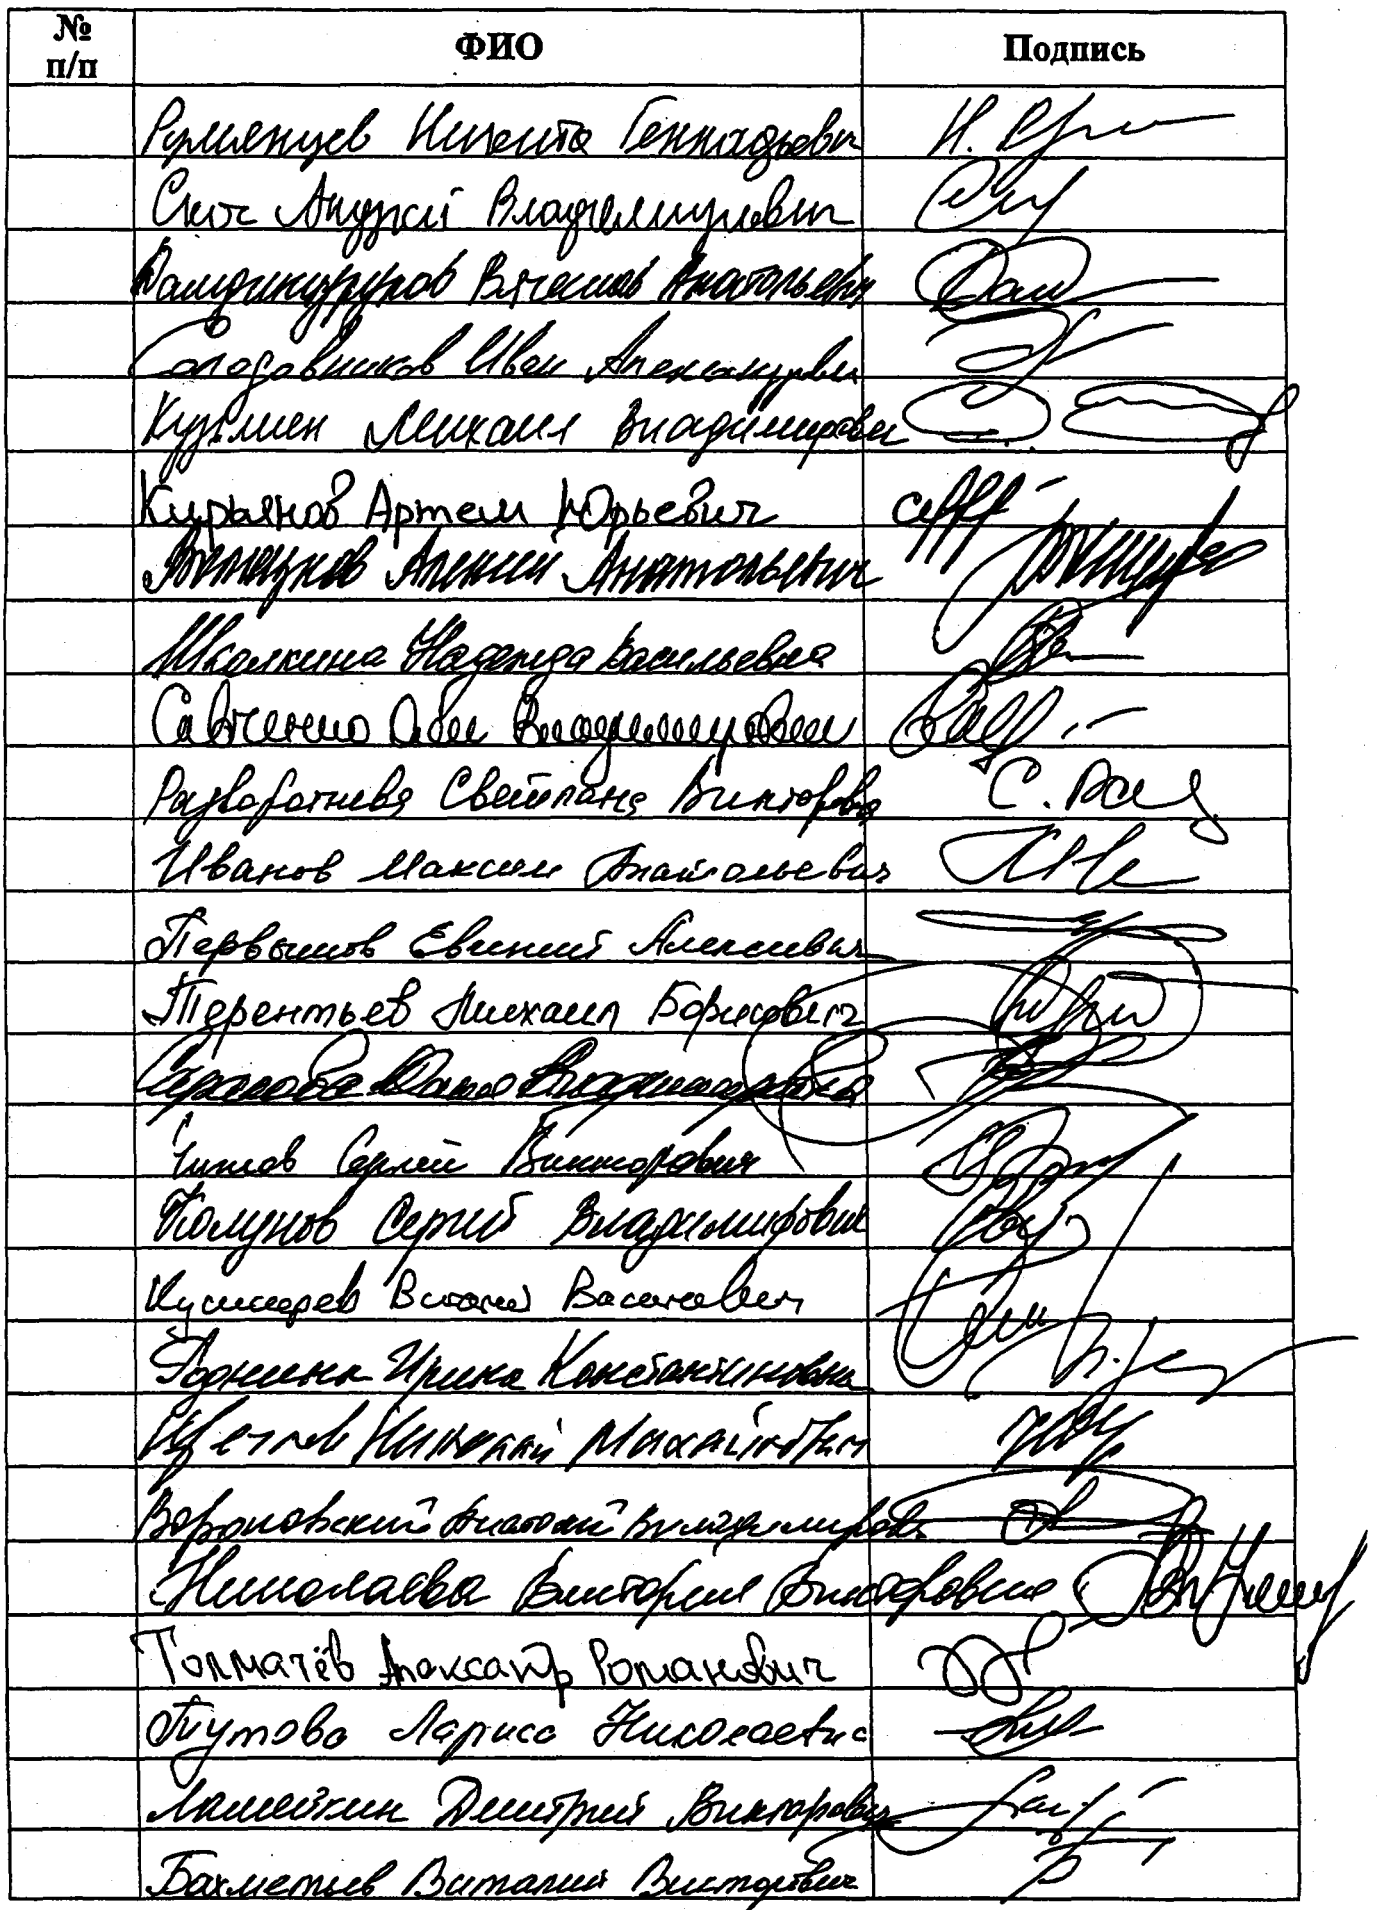 № п/п ФИО Подпись
Румянцев Никита Геннадьевич Н. Рум
Скоч Андрей Владимирович
Дамдинцурунов Вячеслав Анатольевич
Солодовников Иван Александрович
Кузьмин Михаил Владимирович
Курьянов Артем Юрьевич
Анатольевич
Школкина Надежда Васильевна
Савченко Олег Владимирович
Разворотнева Светлана Викторовна С. Раз
Иванов Максим Анатольевич
Первышов Евгений Алексеевич
Терентьев Михаил Борисович
Владимировна
Чижов Сергей Викторович
Колунов Сергей Владимирович
Кушнарев Виталий Васильевич
Роднина Ирина Константиновна
Цветков Николай Михайлович
Вороновский Анатолий Владимирович
Николаева Виктория Викторовна
Толмачёв Александр Романович
Тутова Лариса Николаевна
Ламейкин Дмитрий Викторович
Бахметьев Виталий Викторович